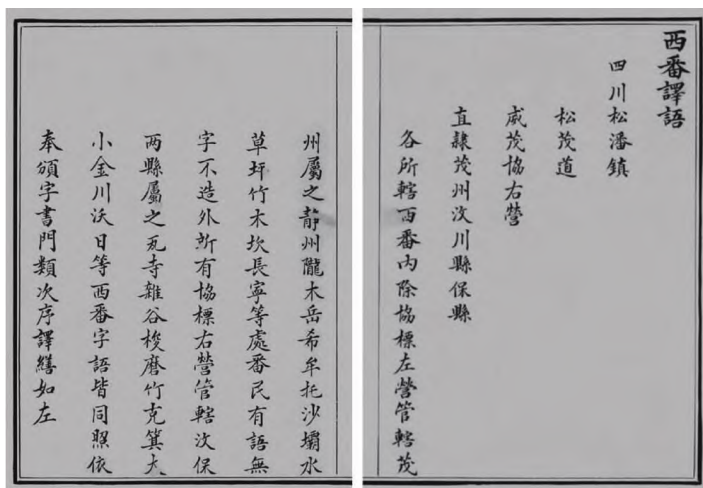 西番譯語
四川松潘鎮
松茂道
威茂協右營
直隸茂州汶川縣保縣
各所轄西番內除協標左營管轄茂
州屬之靜州隴木岳希牟托沙壩水
草坪竹木坎長寧等處番民有語無
字不造外所有協標右營管轄汶保
兩縣屬之瓦寺雜谷梭磨竹克箕大
小金川沃日等西番字語皆同照依
奉頒字書門類次序譯繕如左